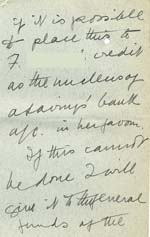 if it is possible
to place this to
F. 's credit
as the nucleus of
a savings' bank
a/c. in her favour.
If this cannot
be done I will
give it to the general
funds of the